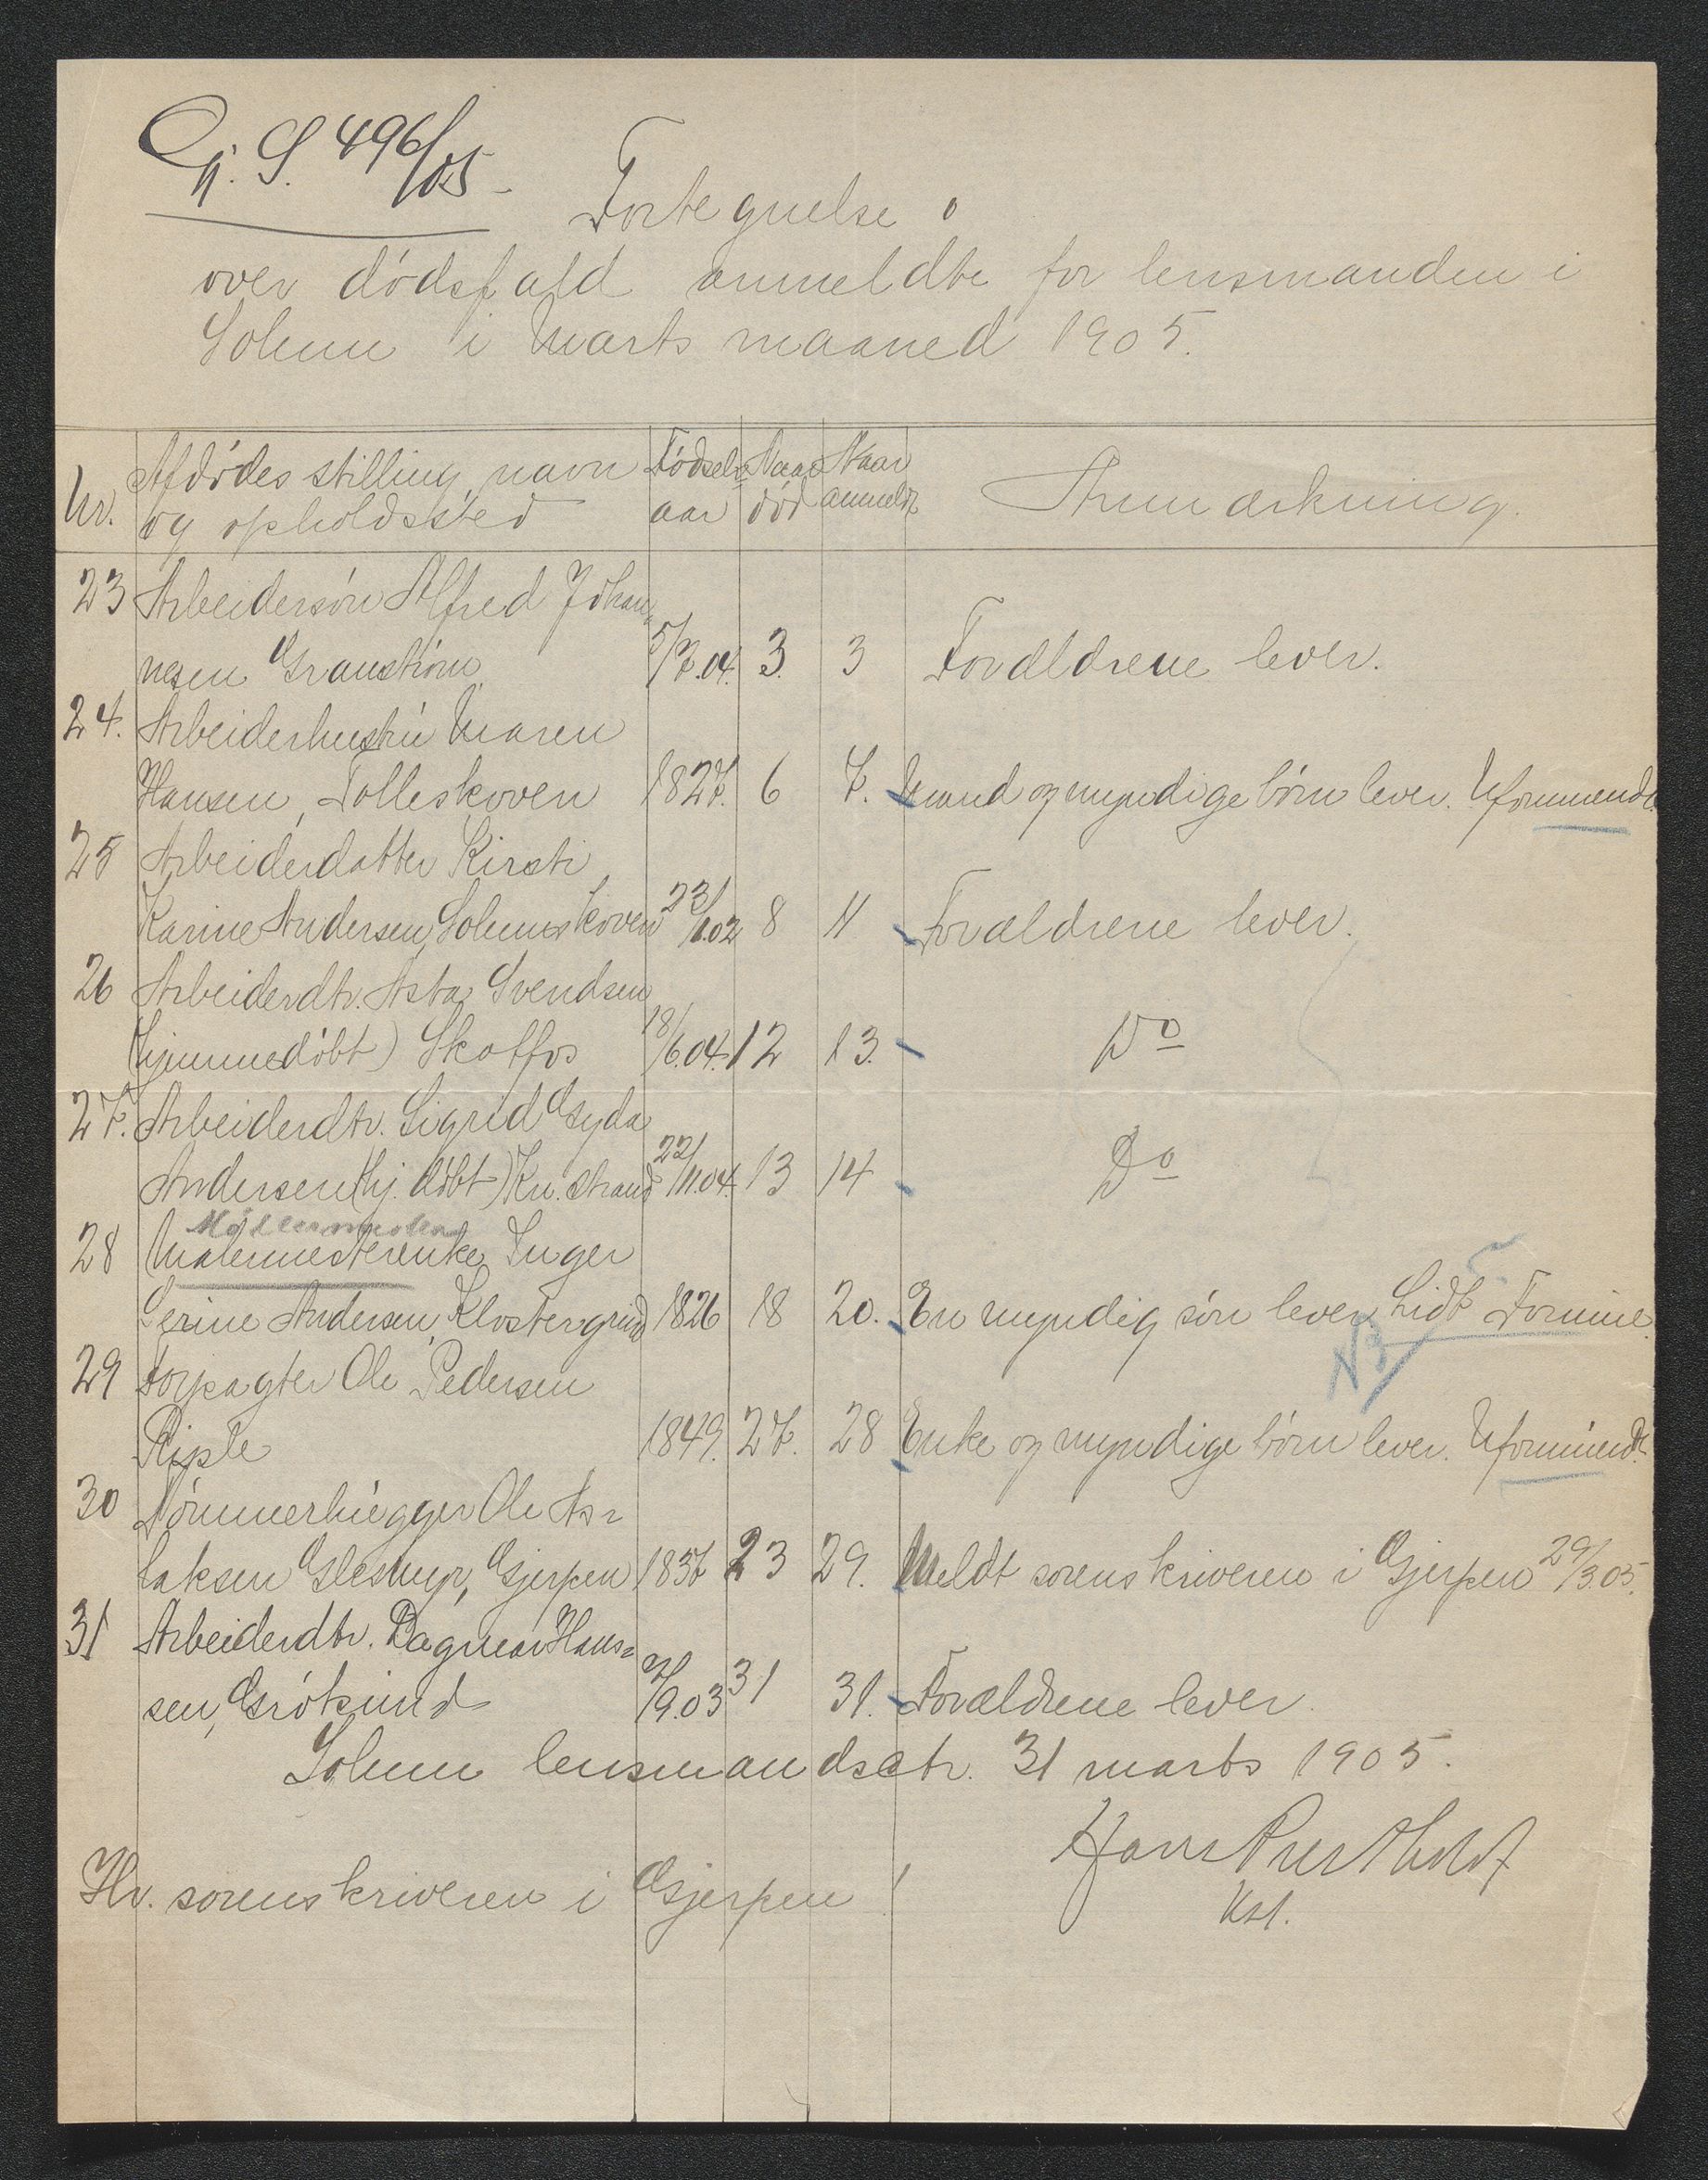 Gj. S. 496/05.
Fortegnelse
over dødsfald anmeldte for lensmanden i
Solum i Marts maaned 1905.
Nr. Afdødes stilling, navn og opholdssted Fødsels aar Naar død Naar anmeldt Anmærkning.
23 Arbeidersøn Alfred Johan-
nesen Granstrøm 5/7.04. 3. 3 Forældrene lever.
24. Arbeiderhustru Maren
Hansen, Folleskoven 1827. 6 7. Mand og myndige børn lever. Uformuende.
25 Arbeiderdatter Kirsti
Karine Andersen, Solumskoven 23/1.02 8 11 Forældrene lever.
26 Arbeiderdtr. Asta Svendsen
(hjemmedøbt) Skotfos 18/6.04. 12 13. Do
27. Arbeiderdtr. Sigrid Gyda
Andersen (hj. døbt) Kn. strand 22/11.04. 13 14 Do
Møllermester
28 Malermesterenke Inger
Serine Andersen, Klostergrund 1826 18 20. En myndig søn lever. Lidt Formue.
NB
29 Forpagter Ole Pedersen
Riple 1849. 27. 28 Enke og myndige børn lever. Uformuende.
30 Tømmerhugger Ole As-
laksen Glesmyr, Gjerpen 1837 23 29. Meldt sorenskriveren i Gjerpen 29/3.05.
31 Arbeiderdtr. Dagmar Han-
sen, Grøtsund 7/9.03 31 31. Forældrene lever.
Solum lensmandsctr. 31 marts 1905.
Kst.
Hr. sorenskriveren i Gjerpen!